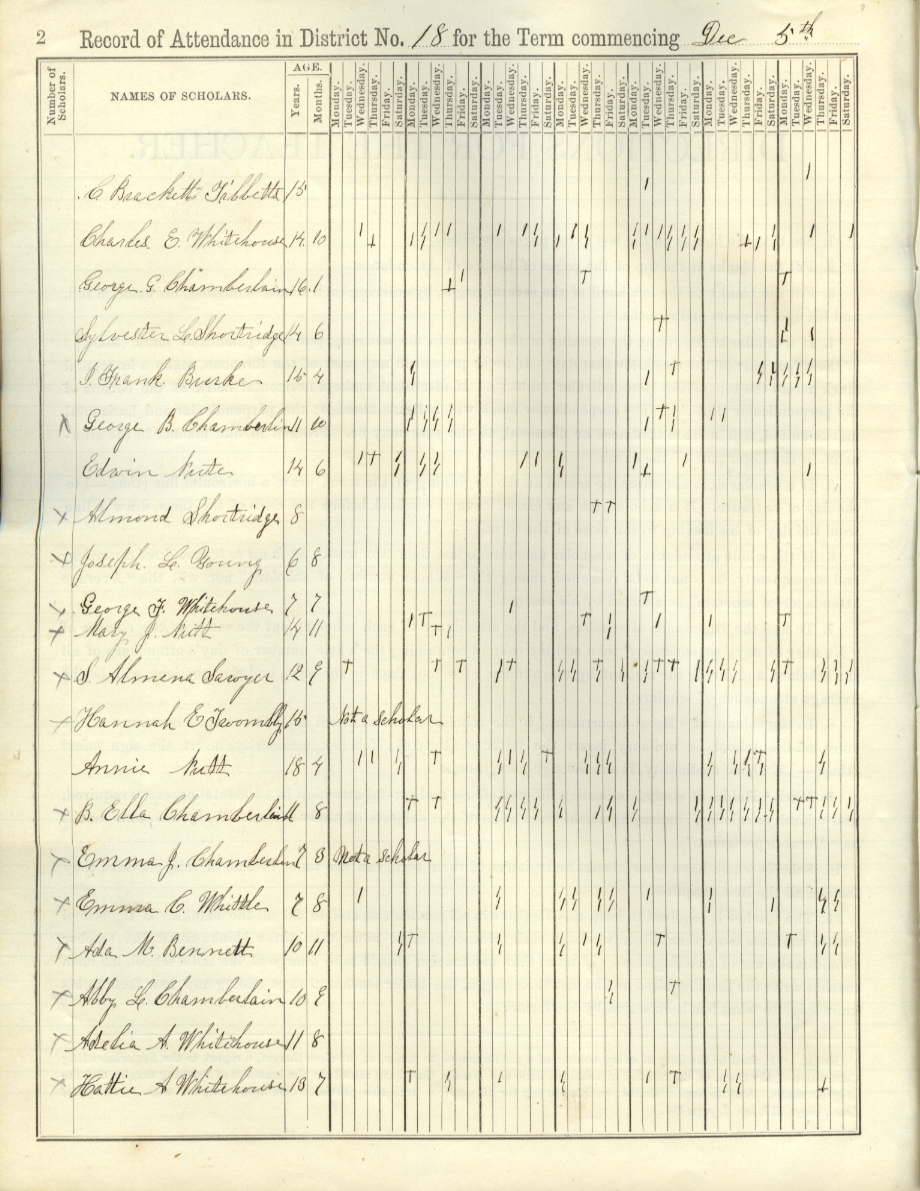 2 Record of Attendance in District No. 18 for the Term commencing Dec 5th
Number of Scholars. NAMES OF SCHOLARS. AGE. Years. Months. Monday. Tuesday. Wednesday. Thursday. Friday. Saturday. Monday. Tuesday. Wednesday. Thursday. Friday. Saturday. Monday. Tuesday. Wednesday. Thursday. Friday. Saturday. Monday. Tuesday. Wednesday. Thursday. Friday. Saturday. Monday. Tuesday. Wednesday. Thursday. Friday. Saturday. Monday. Tuesday. Wednesday. Thursday. Friday. Saturday. Monday. Tuesday. Wednesday. Thursday. Friday. Saturday.
C Brackett Tibbetts 15
Charles E. Whitehouse 14 10
George G. Chamberlain 16 1
Sylvester L. Shortridge 14 6
Frank Burke 15 4
George B. Chamberlin 11 10
Edwin Nute 14 6
Almond Shortridge 8
Joseph L. Young 6 8
George F. Whitehouse 7 7
Mary J. Nutt 14 11
S Almena Sawyer 12 9
Hannah E Twombly 15 Not a scholar
Annie Nutt 18 4
B. Ella Chamberlin 11 8
Emma J. Chamberlin 7 3 Not a scholar
Emma C. Whittle 7 8
Ada M. Bennett 10 11
Abby L. Chamberlain 10 9
Adelia A. Whitehouse 11 8
Hattie A Whitehouse 13 7